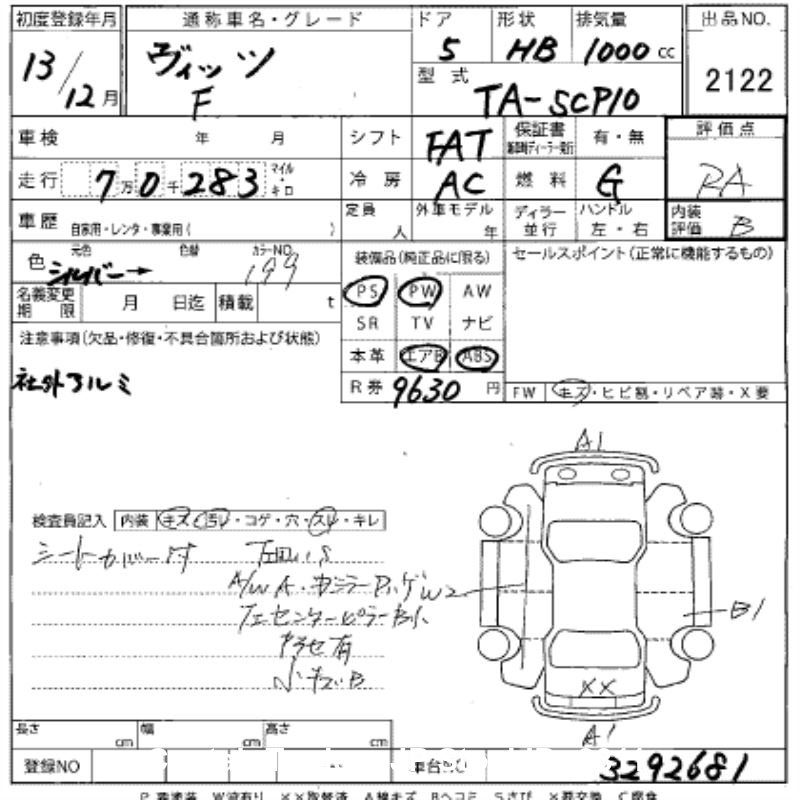 初度登録年月 通称車名・グレード ドア 形状 排気量 出品NO.
13/12月 ヴィッツ F 5 HB 1000cc 2122
型式 TA-SCP10
車検 年 月 シフト FAT 保証書 有・無 評価点
走行 7万0千283 マイル・キロ 冷房 AC 燃料 G RA
車歴 自家用・レンタ・事業用( ) 定員 人 外車モデル 年 ディラー並行 ハンドル 左・右 内装評価 B
色 元色 シルバー→ 色替 カラーNO. 199 装備品(純正品に限る) セールスポイント(正常に機能するもの)
名義変更期限 月 日迄 積載 t PS PW AW
SR TV ナビ
注意事項(欠品・修復・不具合箇所および状態) 本革 エアB ABS
社外アルミ R券 9630円 FW キズ・ヒビ割・リペア跡・X要
A1
検査員記入 内装 キズ・汚レ・コゲ・穴・スレ・キレ
シートカバー付
A/W A・
W2 B1
センターピラー
有
小キズB
XX
A1
長さ cm 幅 cm 高さ cm
登録NO 車台NO 3292681